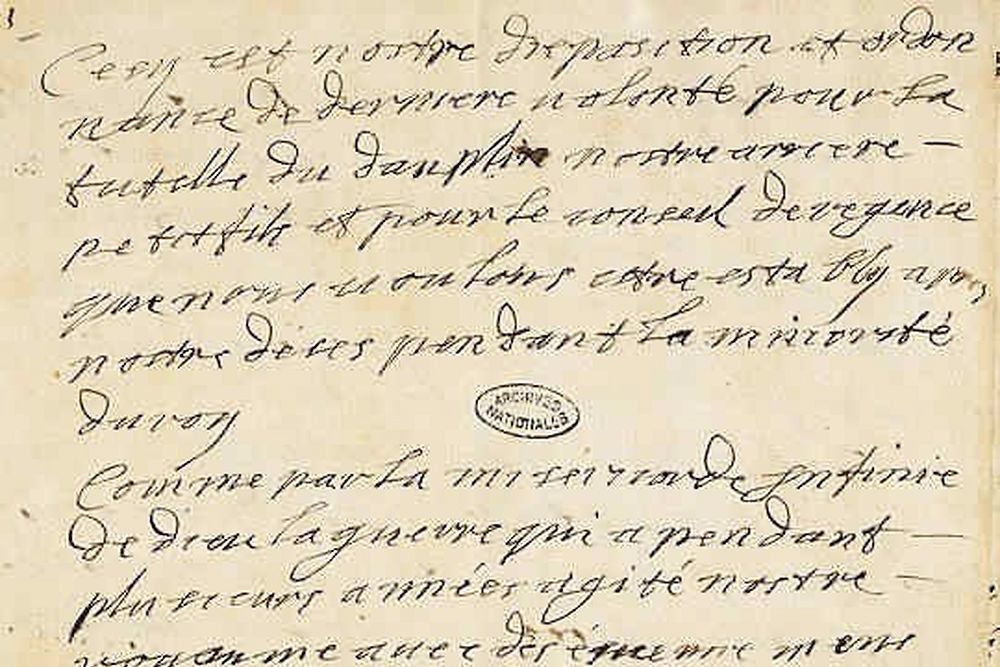 Cecy est nostre disposition et ordon
nance de derniere volonté pour la
tutelle du dauphin nostre arriere —
petit fils et pour le conseil de regence
que nous voulons estre estably apres
nostre deces pendant la minorité
du roy
ARCHIVES NATIONALES
Comme par la misericorde infinie
de dieu la guerre qui a pendant —
plusieurs années agité nostre —
royaume avec des